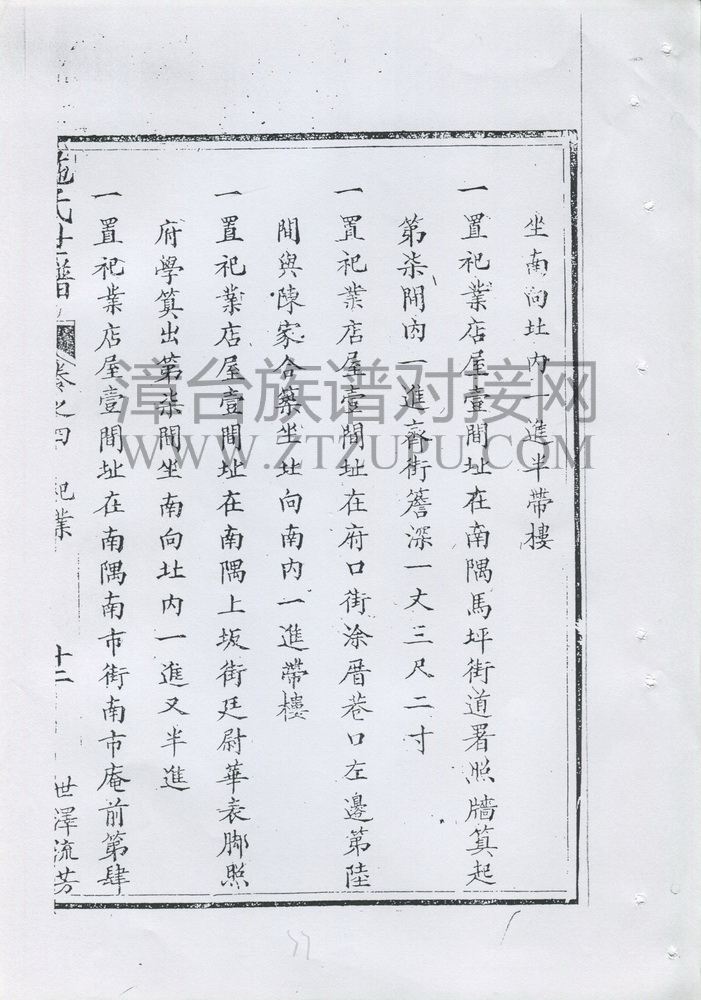 坐南向北內一進半帶樓
一置祀業店屋壹間址在南隅馬坪街道署照牆筭起
第柒間內一進齊街簷深一丈三尺二寸
一置祀業店屋壹間址在府口街涂厝巷口左邊第陸
間與陳家合築坐北向南內一進帶樓
一置祀業店屋壹間址在南隅上坂街廷尉華表脚照
府學筭出第柒間坐南向北內一進又半進
一置祀業店屋壹間址在南隅南市街南市庵前第肆
施氏世譜 卷之四 祀業 十二 世澤流芳
漳台族谱对接网
WWW.ZTZUPU.COM